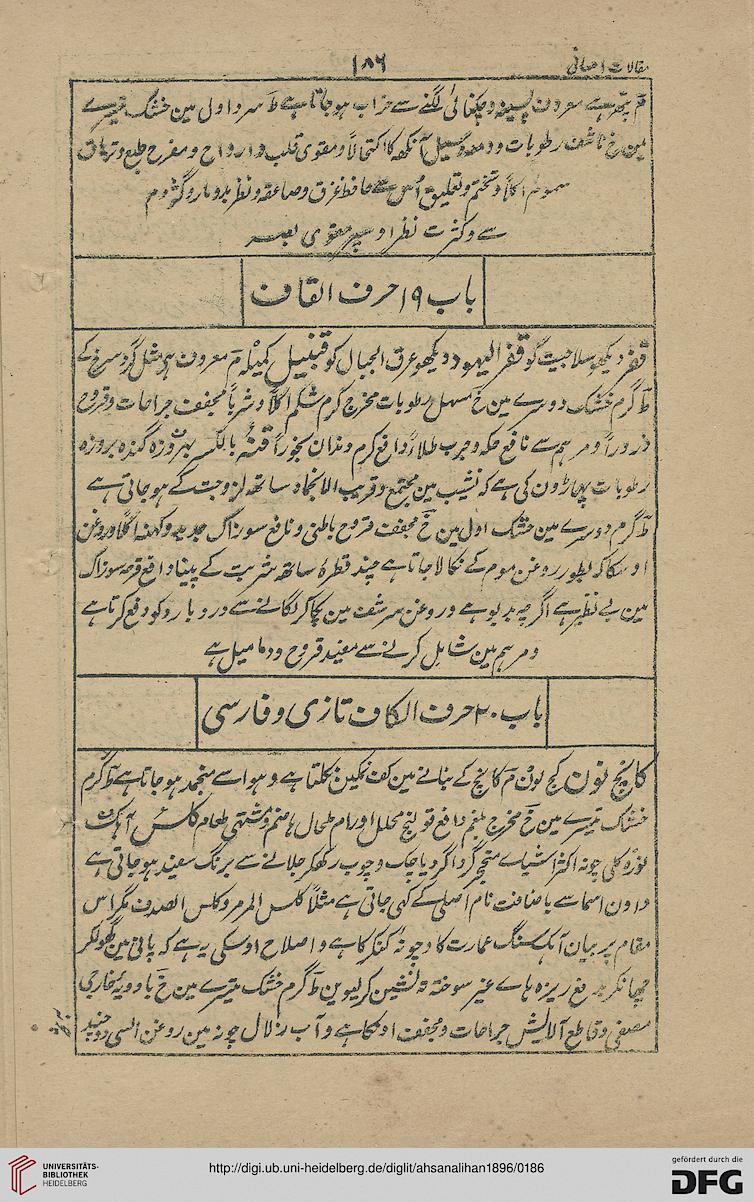 مقالات احسانی ۱۸۶
مَ پتھر ہے معروف پسینہ و چکنائی لگنے سے خراب ہو جاتا ہے طَ سرد اول مین خشک تیسرے
مین خَ ناشف رطوبات و دمعہ و سیل آنکھ کا اکتحالاً و مقوی قلب و ارواح و مفرح طبع و تریاق
سموم اکلاً و تختم و تعلیق اُس سے حافظ غرق و صاعقہ و نظر بد و مار و گژدم
سے و کثرت نظر اوسپر مقوی بصر
باب ۱۹ حرف القاف
قفر دیکھو سلاجیت گو قفر الیہود دیکھو عرق الجبال کو قنبیل کمیلہ مَ معروف ہی مثل گرد سرخ کے
طَ گرم خشک دوسرے مین خَ مسہل رطوبات مخرج کرم شکم اکلاً و شرباً مجفف جراحات و قروح
ذروراً و مرہم سے نافع حکہ و جرب طلاءً دافع کرم دندان بخوراً قنہ بالکسر بہروزہ گندہ بروزہ
رطوبات پہاڑون کی ہے کہ نشیب مین مجتمع و قریب الانجماد ساتھ لزوجت کے ہو جاتی ہے
طَ گرم دوسرے مین خشک اول مین خَ مجفف قروح باطنی و نافع سوزاک جدید و کہنہ اکلاً و روغن
اوسکا کہ بطور روغن موم کے نکالا جاتا ہے چند قطرہ ساتھ شربت کے پینا دافع قرحہ سوزاک
مین بے نظیر ہے اگرچہ بدبو ہے و روغن سرشف مین پکا کر لگانے سے درد بارد کو دفع کرتا ہے
و مرہم مین شامل کرنے سے مفید قروح و دمامیل ہے
باب ۲۰ حرف الکاف تازی و فارسی
کانچ نون کچ لون مَ کانچ کے بنانے مین کف نمکین نکلتا ہے و ہوا سے منجمد ہو جاتا ہے طَ گرم
خشک تیسرے مین خَ مخرج بلغم دافع قولنج محلل اورام طحال ہاضم و مشتہی طعام کلس آہک
نورہ کلی چونہ اکثر اشیاے متحجر گرداگرد پاچک و چوب رکھکر جلانے سے برنگ سفید ہو جاتی ہے
و اون اسما سے باضافت نام اصلی کے کہی جاتی ہے مثلاً کلس المرمر و کلس الصدف مگر اس
مقام پر بیان آہک سنگ عمارت کا و چونہ کنکر کا ہے و اصلاح اوسکی یہ ہے کہ پانی مین گھولکر
چھانکر بدفع ریزہ ہاے غیر سوختہ تہ نشین کر لیوین طَ گرم خشک تیسرے مین خَ با دویہ خارجی
مصفی و قاطع آلایش جراحات و مجفف اونکا ہے و آب زلال چونہ مین روغن السی دو چند
UNIVERSITÄTS-
BIBLIOTHEK
HEIDELBERG
http://digi.ub.uni-heidelberg.de/diglit/ahsanalihan1896/0186
gefördert durch die
DFG